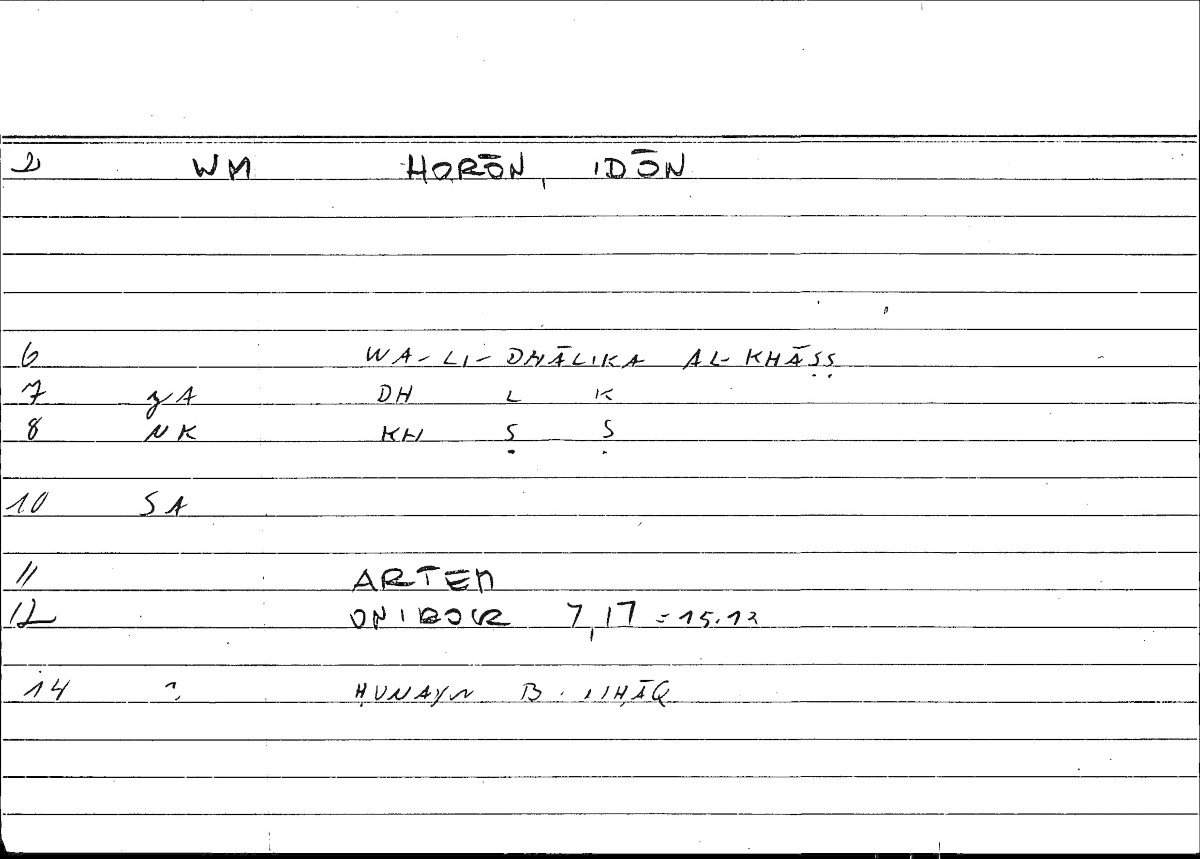 2 WM HORŌN, IDŌN
6 WA-LI-DHĀLIKA AL-KHĀṢṢ
7 ZA DH L K
8 NK KH Ṣ Ṣ
10 SA
11 ARTEM
12 7,17 = 15.12
14 ? ḤUNAYN B. ISḤĀQ